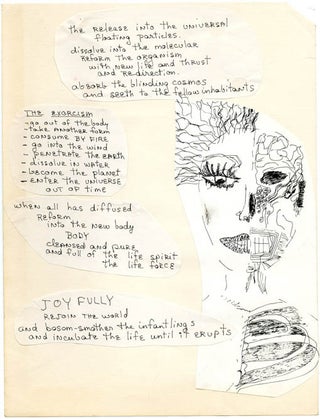 the RELEASE INTO the UNIVERSAL
floating particles.
dissolve into the molecular
REFORM THE ORGANISM
with NEW LIFE and THRUST
and REDIRECTION.
absorb the blinding cosmos
and seeth to the fellow inhabitants
THE EXORCISM
- go out of the body
- take ANOTHER form
- CONSUME BY FIRE
- go into the WIND
- PENETRATE THE EARTH
- DISSOLVE IN WATER
- become the planet
- ENTER THE UNIVERSE
OUT OF TIME
when all has diffused
REFORM
into the New body
BODY
cleansed and pure
and full of the life spirit
the life force
JOY FULLY
REJOIN THE WORLD
and bosom-smother the infantlings
and incubate the life until it erupts